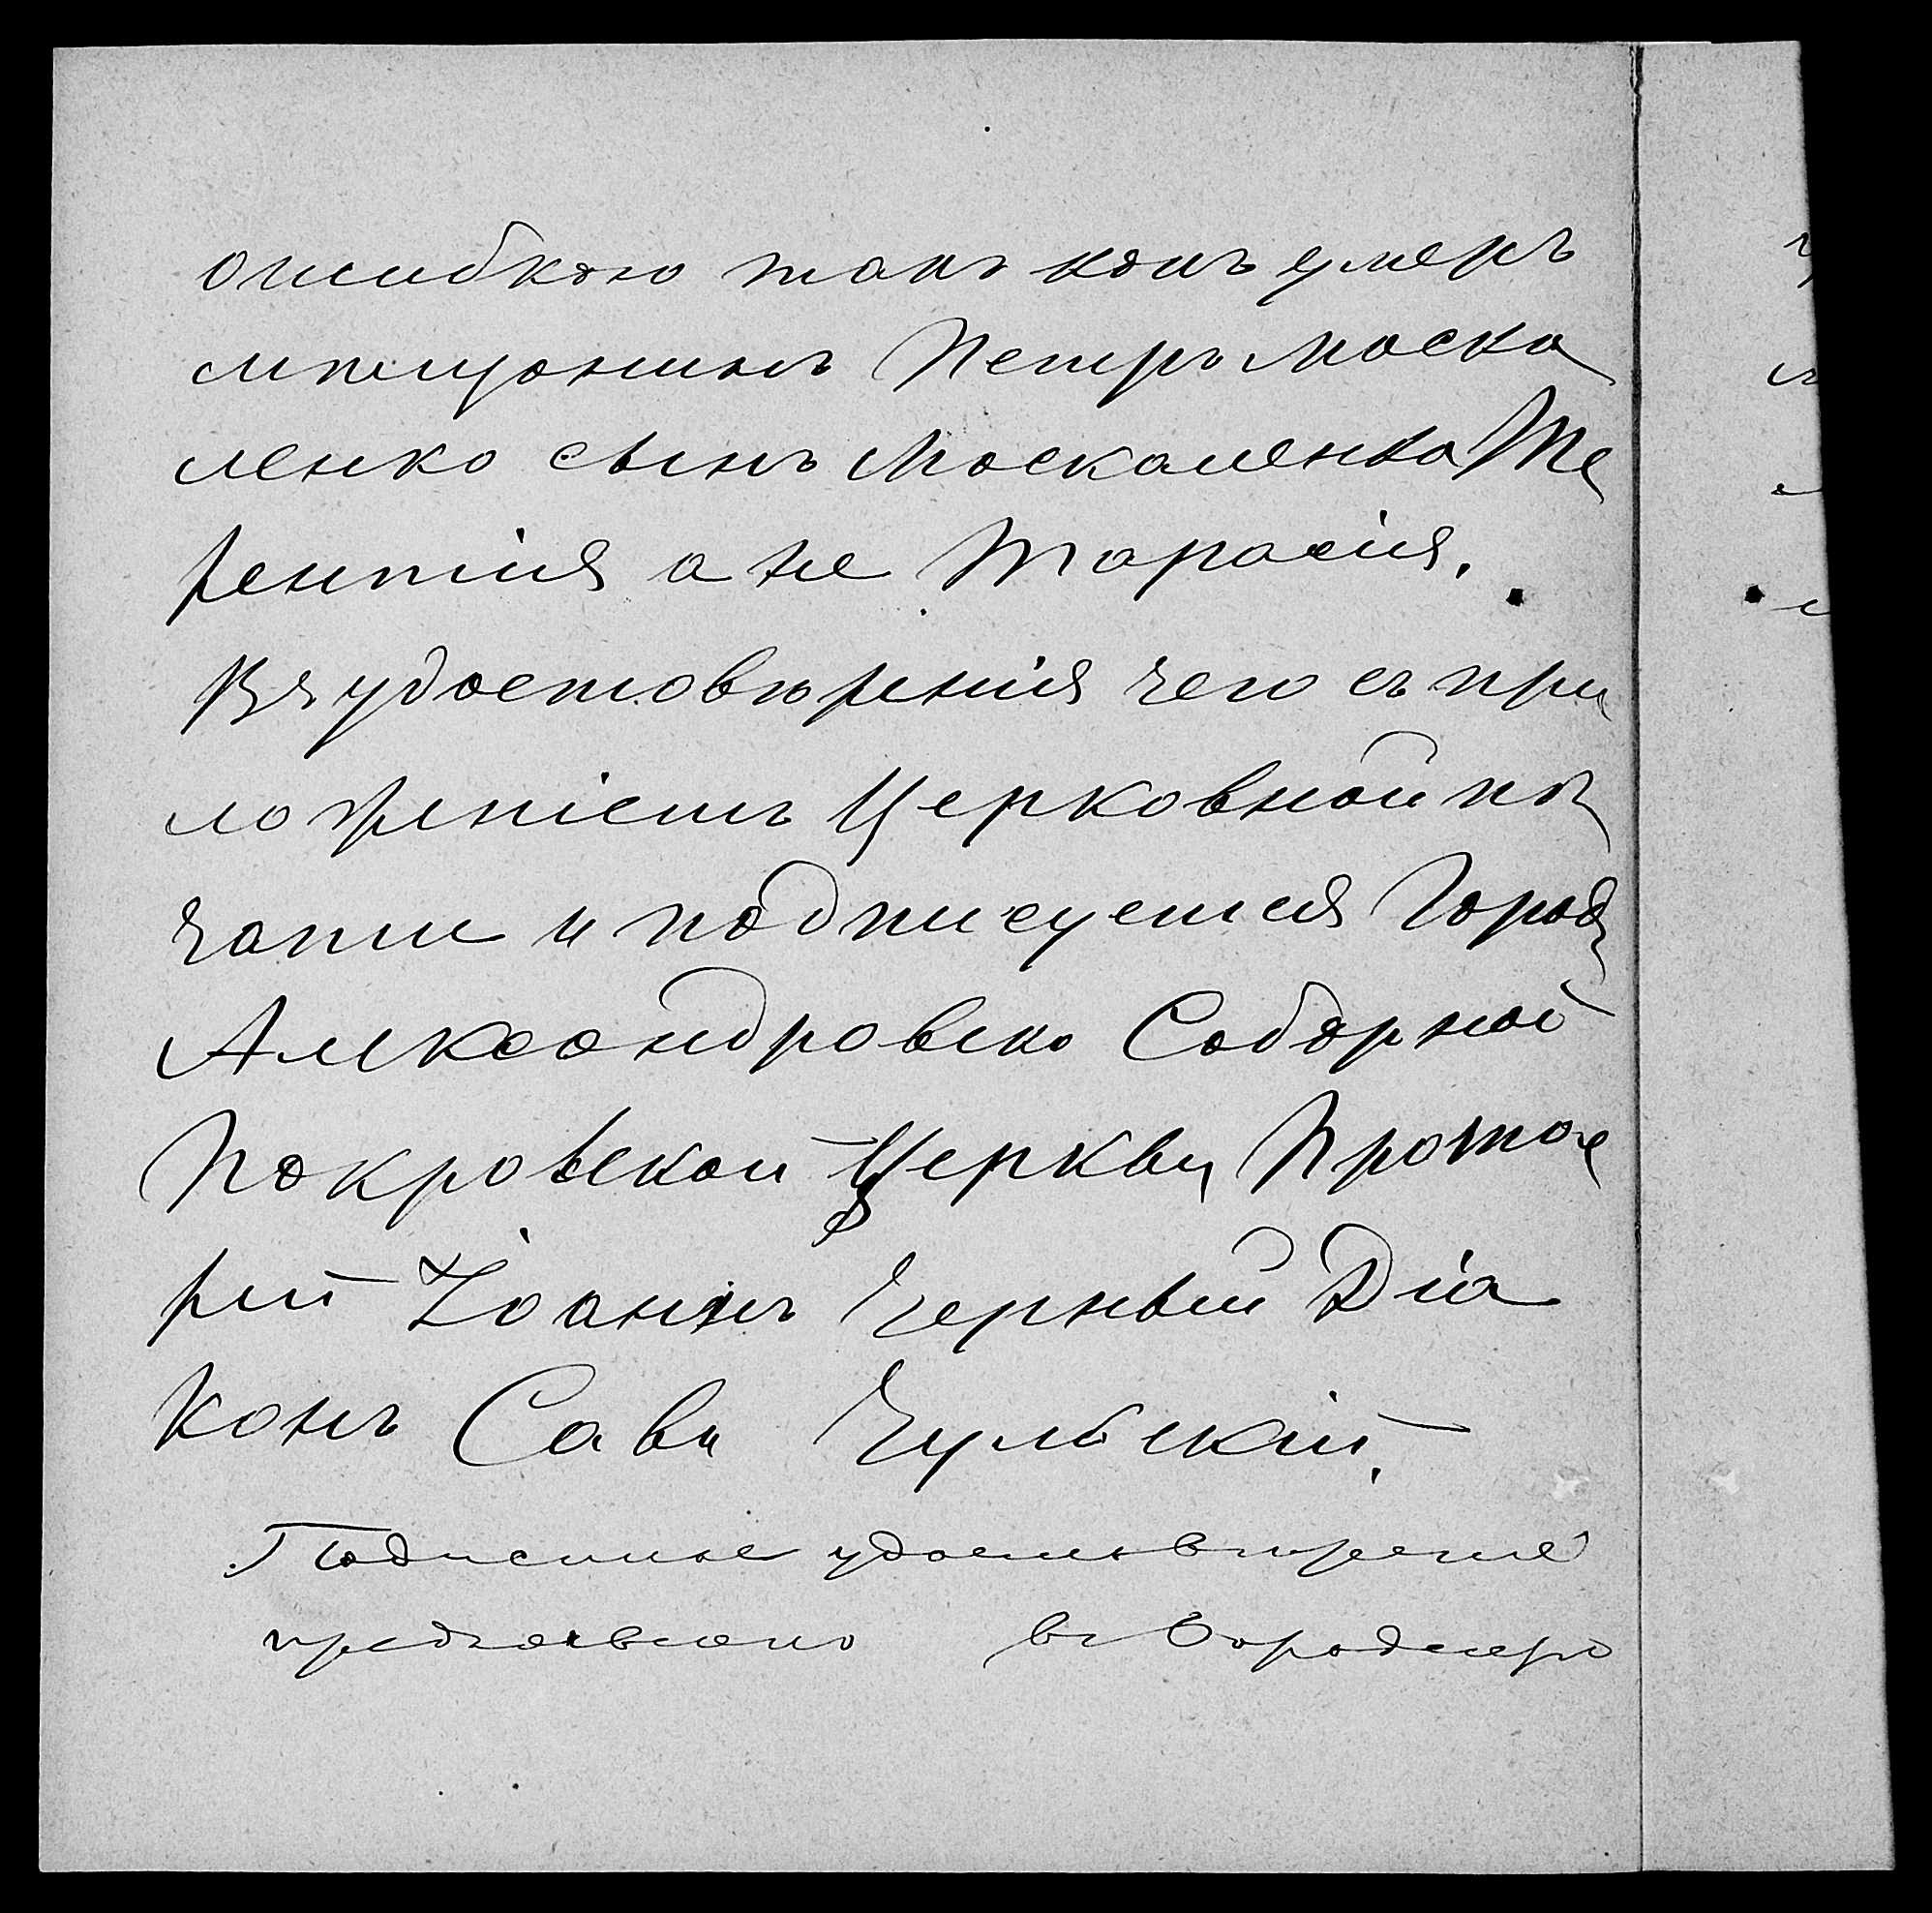 ошибкою такъ какъ умеръ
мѣщанинъ Петръ Моска
ленко сынъ Москаленка Те
рентія а не Тарасія.
Въ удостовѣренія чего съ при
ложеніемъ Церковной пѣ
чати и подписуемся Город
Александровска Соборной
Покровской Церкви, Протое
рей Іоаннъ Черный Діа
конъ Сава Чульскій.
Подписаное удостовѣреніе
предъявлено въ